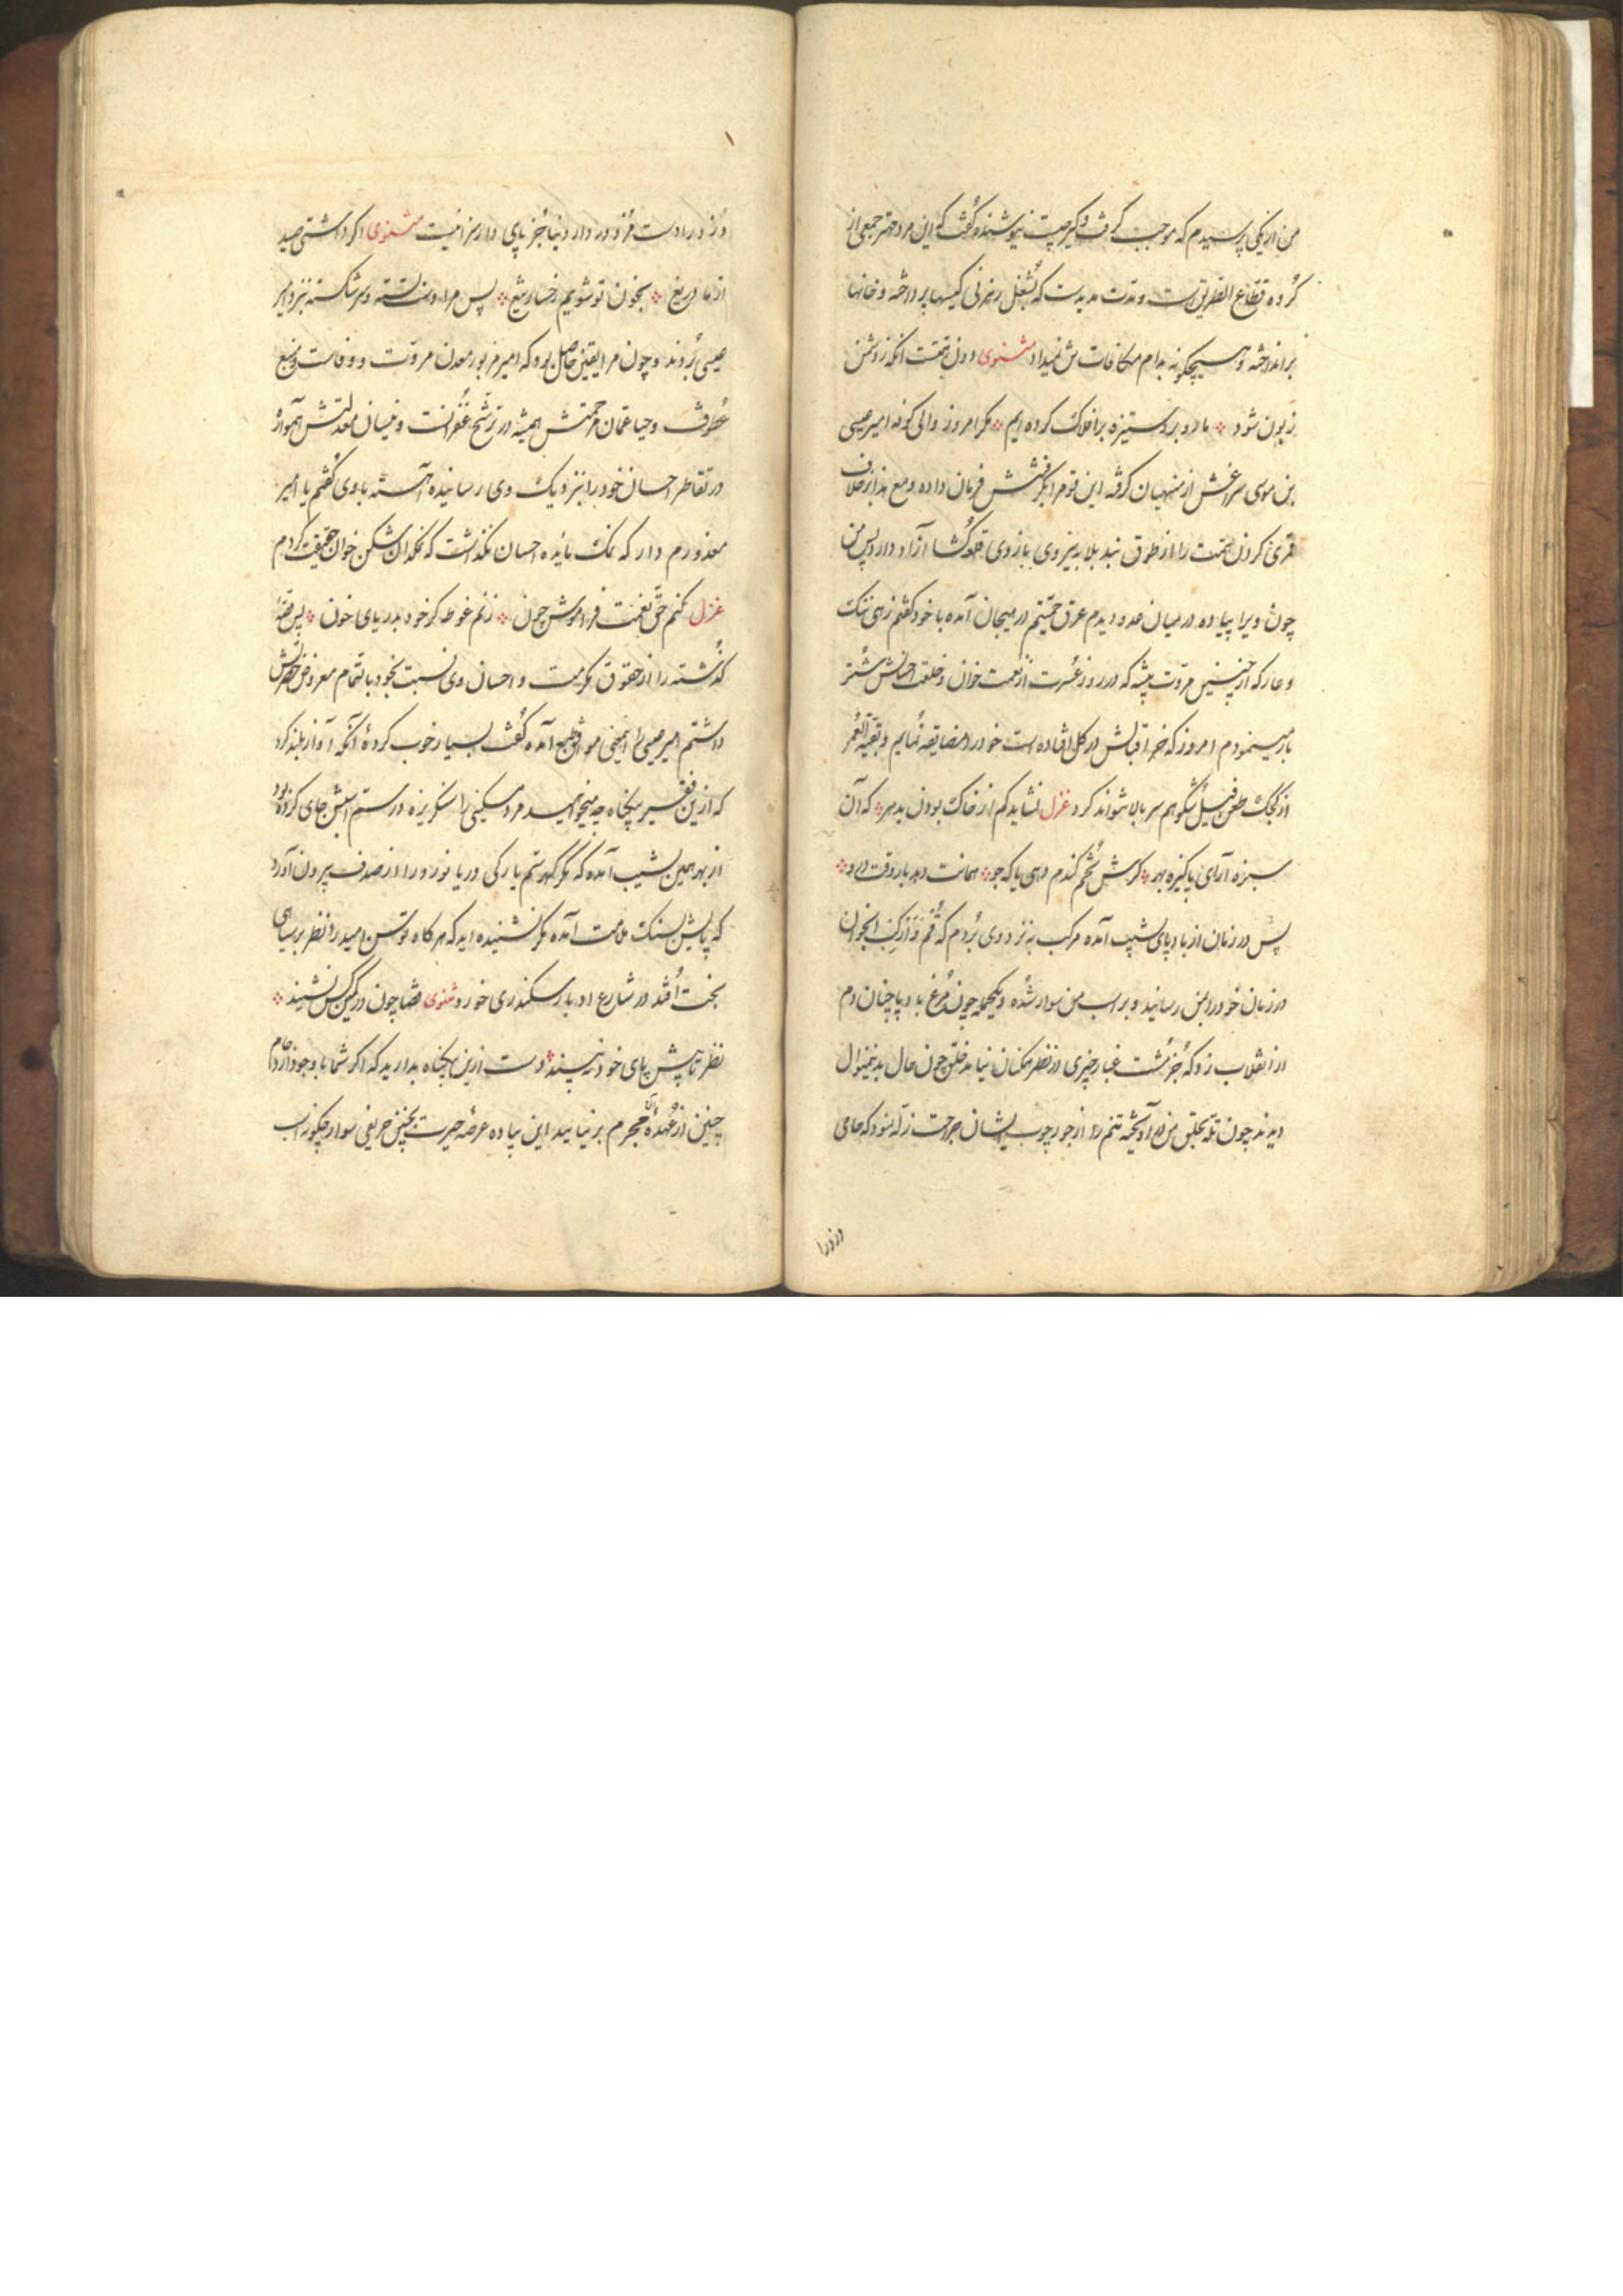 من از یکی پرسیدم که موجب گرفت و گیر چیست نیوشنده گفت که این مرد مهتر جمعی از
گروه قطاع الطریق است و مدت مدیدست که بشغل رهزنی کیسها پرداخته و خانها
برانداخته و هیچگونه بدام مکافات تن نمیداد مثنوی دون تهمتت انکه ز دشمن
زبون شود ما رو بروستیزه بر افلاک کرده ایم مگر امروز والی کوفه امیر عیسی
بن موسی سراغش از منهیان گرفته این قوم را بگرفتنش فرمان داده و مع هذا بر خلاف
قمری گردن همت را از طوق بند بلا به نیروی بازوی قلعه گشا آزاد دارد پس من
چون ویرا پیاده در میان عدو دیدم عرق حمیتم در هیجان آمده با خود گفتم زهی ننگ
و عار که از چنین مروت پیشه که در روز عسرت از نعمت خوان و خلعت احسانش شتر
بار مینمودم امروز که خر اقبالش در گل افتاده است خود را مضایقه نمایم و بقیة العمر
از کجک طعن فیل شکوهم سر بالا نتواند کرد غزل نشاید کم از خاک بودن بدهر که آن
سبزه آرای پاکیزه بهر گرش تخم گندم دهی یا که جو همانت دهد باز وقت درو
پس در زمان از بادپای بشیب آمده مرکب به نزد وی بردم که قم فارکب انجوان
در زمان خود را بمن رسانید و بر اسب من سوار شده و یکجمله چون مرغ با دیا چنان دم
از انقلاب زد که جز مشت غبار چیزی در نظر همکنان نیامد خلق چون حال بدینمنوال
دیدند چون تکه بحلق من در آویخته تنم را از جور چوب ایشان جراحت زله نمود که جای
دزد را
دزد را دست مزد در دار دنیا جز پای دار سزا نیست مثنوی اگر داشتی صید
از ما دریغ بخون تو شویم رخسار تیغ پس مرا دست بسته و سر شکسته نزد امیر
عیسی بردند و چون مرا یقین حاصل بود که امیر مزبور معدن مروت و وفاست و منبع
عطوفت و حیا غمان مرحمتش همیشه در ترشح غفرانست و نیسان معدلتش همواره
در تقاطر احسان خود را بنزدیک وی رسانیده آهسته با وی گفتم یا امیر
معذورم دار که نمک مائده احسان نگذاشت که نمکدان شکن خوان حقیقت گردم
غزل کنم حق نعمت فراموش چون زنم غوطه گر خود بدریای خون پس قصه
گذشته را از حقوق مکرمت و احسان وی نسبت بخود باتمام معروض حضرتش
داشتم امیر عیسی را اینمعنی موافق طبع آمده گفت بسیار خوب کردهٔ آنگه آواز بلند کرد
که از این فقیر بیگناه چه میخواهید مرد مسکینی را سنگریزه در سم اسبش جای کرده بود
از بهر همین بشیب آمده که مگر گهر ستم یا رکی دریا نورد را از صدف بیرون آورد
که پایش بسنک ملامت آمده مگر نشنیده اید که هر گاه توسن امید را نظر بر سیاهی
بخت افتد در شارع ادبار سکندری خورد مثنوی قضا چون در کمین کس نشیند
نظر تا پیش پای خود نه بیند دست از این بیگناه بدارید که اگر شما با وجود ازدحام
چنین از عهدهٔ آن مجرم بر نیایید این پیاده عرضه حیرت بچنین حریفی سوار چگونه اسب